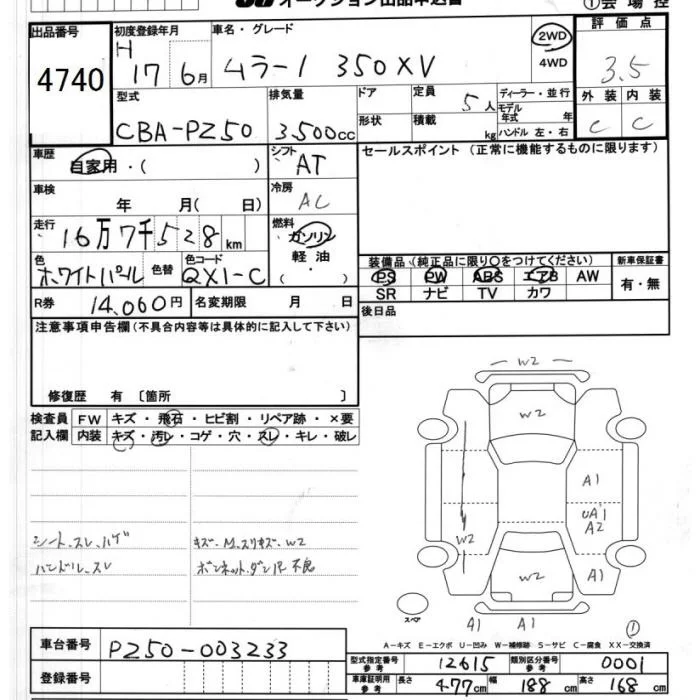 オークション出品申込書 ①会場控
出品番号 初度登録年月 車名・グレード 評価点
4740 H 17年 6月 ムラーノ 350XV 2WD 4WD 3.5
型式 排気量 ドア 定員 5人 ディーラー・並行 外装 内装
CBA-PZ50 3.500cc 形状 積載 kg モデル年式 年 ハンドル 左・右 C C
車歴 自家用・( ) シフト AT セールスポイント (正常に機能するものに限ります)
車検 年 月( 日) 冷房 AC
走行 16万7千528km 燃料 ガソリン 軽油 ・ ( )
色 ホワイトパール 色替 色コード QX1-C
装備品(純正品に限り○をつけてください) 新車保証書
PS PW ABS エアB AW 有・無
SR ナビ TV カワ
R券 14,060円 名変期限 月 日 後日品
注意事項申告欄(不具合内容等は具体的に記入して下さい)
修復歴 有〔箇所 〕
検査員 FW キズ・飛石・ヒビ割・リペア跡・×要
記入欄 内装 キズ・汚レ・コゲ・穴・スレ・キレ・破レ
シート.スレ.ハゲ キズ.M.スリキズ.W2
ハンドル.スレ ボンネット.ダンパ不良
W2
W2
A1
UA1
A2
W2
W2
A1
スペア
A1 A1 ①
A-キズ E-エクボ U-凹み W-補修跡 S-サビ C-腐食 XX-交換済
車台番号 PZ50-003233
型式指定番号 参考 12615 類別区分番号 参考 0001
登録番号 車庫証明用 参考 長さ 477cm 幅 188cm 高さ 168cm